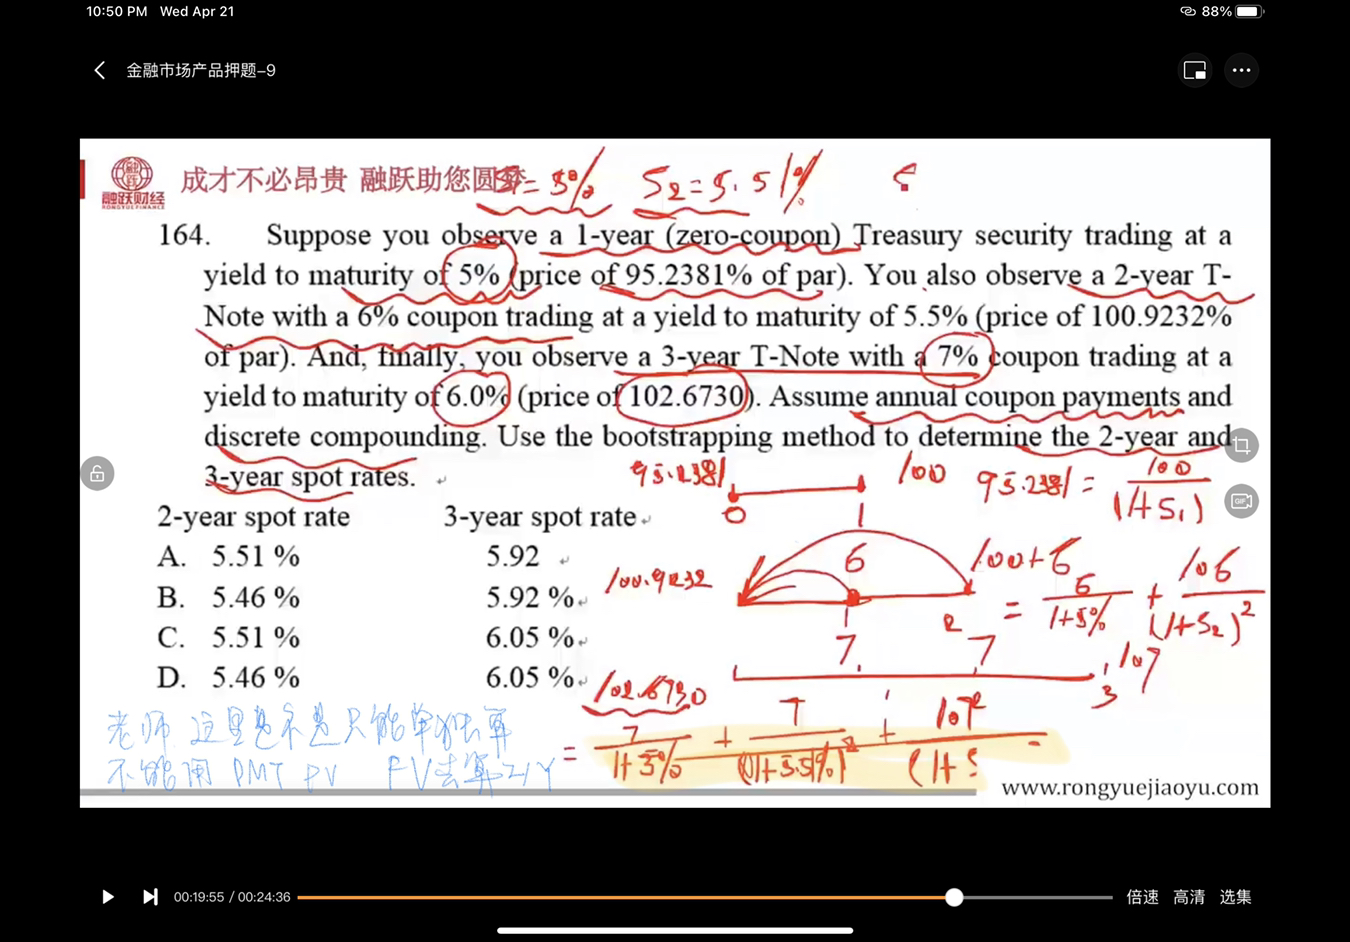 10:50 PM Wed Apr 21
88%
金融市场产品押题-9
融跃财经
RONGYUE FINANCE
成才不必昂贵 融跃助您圆梦
S1=5% S2=5.51% S
164. Suppose you observe a 1-year (zero-coupon) Treasury security trading at a
yield to maturity of 5% (price of 95.2381% of par). You also observe a 2-year T-
Note with a 6% coupon trading at a yield to maturity of 5.5% (price of 100.9232%
of par). And, finally, you observe a 3-year T-Note with a 7% coupon trading at a
yield to maturity of 6.0% (price of 102.6730). Assume annual coupon payments and
discrete compounding. Use the bootstrapping method to determine the 2-year and
3-year spot rates.
95.2381 0 1 100 95.2381 = 100/(1+S1)
2-year spot rate 3-year spot rate
A. 5.51 % 5.92
B. 5.46 % 5.92 %
C. 5.51 % 6.05 %
D. 5.46 % 6.05 %
100.9232 6 1 2 100+6 = 6/1+5% + 106/(1+S2)^2
7 7 107 3
102.6730
= 7/1+5% + 7/(1+5.51%)^2 + 107/(1+S
老师 这里是不是只能单独算
不能用 PMT PV FV去算I/Y
www.rongyuejiaoyu.com
GIF
00:19:55 / 00:24:36
倍速 高清 选集